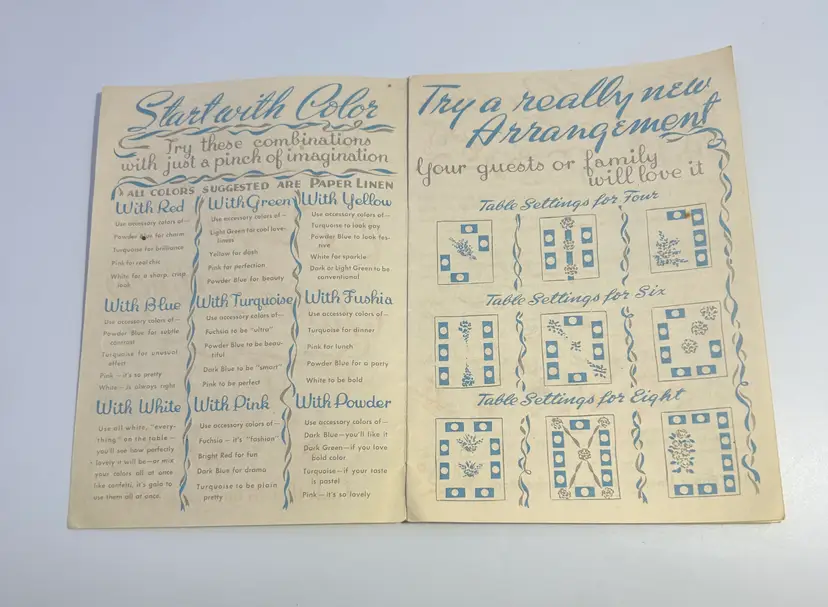 Start with Color
Try these combinations
with just a pinch of imagination
ALL COLORS SUGGESTED ARE PAPER LINEN
With Red
Use accessory colors of—
Powder Blue for charm
Turquoise for brilliance
Pink for real chic
White for a sharp, crisp,
look
With Green
Use accessory colors of—
Light Green for cool love-
liness
Yellow for dash
Pink for perfection
Powder Blue for beauty
With Yellow
Use accessory colors of—
Turquoise to look gay
Powder Blue to look fes-
tive
White for sparkle
Dark or Light Green to be
conventional
With Blue
Use accessory colors of—
Powder Blue for subtle
contrast
Turquoise for unusual
effect
Pink—it's so pretty
White—is always right
With Turquoise
Use accessory colors of—
Fuchsia to be "ultra"
Powder Blue to be beau-
tiful
Dark Blue to be "smart"
Pink to be perfect
With Fushia
Use accessory colors of—
Turquoise for dinner
Pink for lunch
Powder Blue for a party
White to be bold
With White
Use all white, "every-
thing" on the table—
you'll see how perfectly
lovely it will be—or mix
your colors all at once
like confetti, it's gala to
use them all at once.
With Pink
Use accessory colors of—
Fuchsia—it's "fashion"
Bright Red for fun
Dark Blue for drama
Turquoise to be plain
pretty
With Powder
Use accessory colors of—
Dark Blue—you'll like it
Dark Green—if you love
bold color
Turquoise—if your taste
is pastel
Pink—it's so lovely
Try a really new
Arrangement
Your guests or family
will love it
Table Settings for Four
Table Settings for Six
Table Settings for Eight